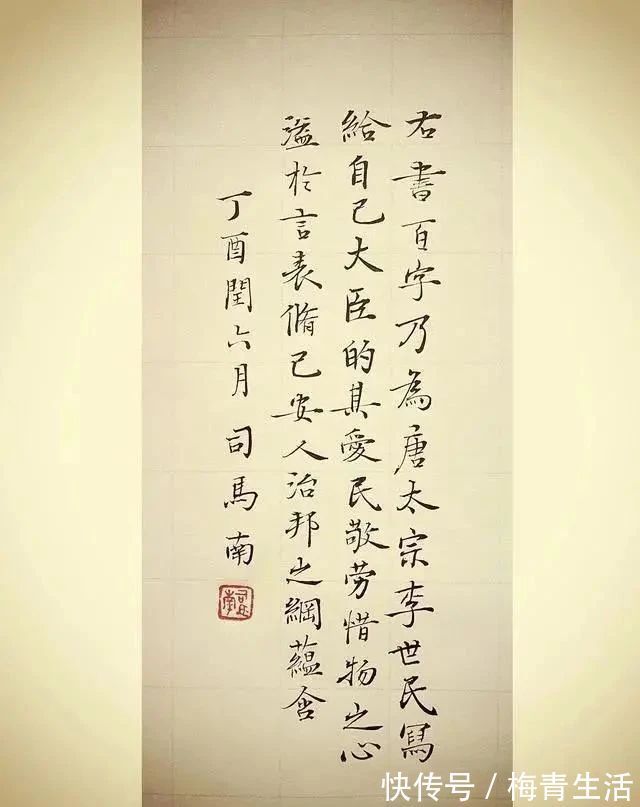 右書百字乃為唐太宗李世民寫
給自己大臣的其愛民敬勞惜物之心
溢於言表脩己安人治邦之綱蘊含
丁酉閏六月 司馬南
快传号 / 梅青生活